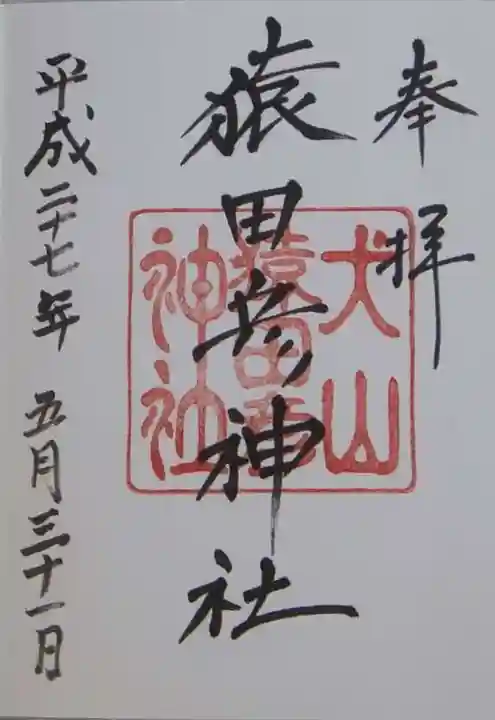 奉拝
猿田彦神社
犬山
猿田彦
神社
平成二十七年 五月三十一日